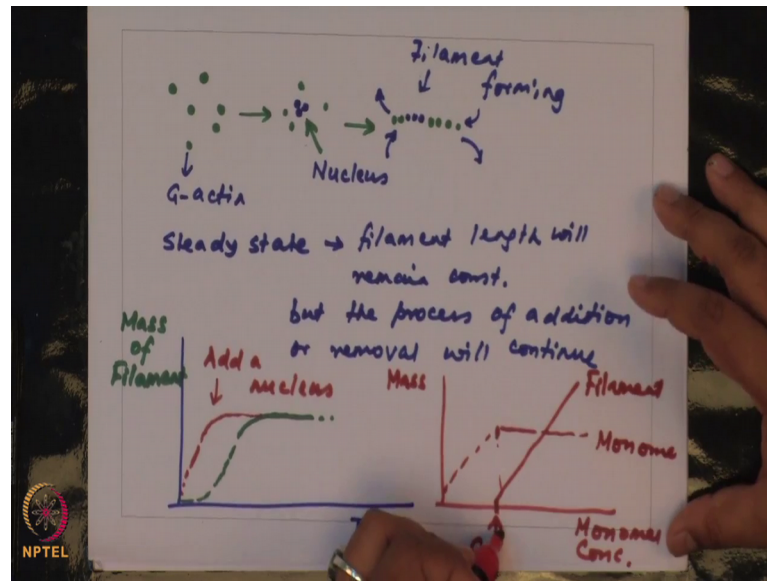 Filament
forming
Nucleus
G-actin
Steady state → filament length will
remain const.
but the process of addition
or removal will continue
Mass
of
Filament
Add a
nucleus
Mass
Filament
Monome
Monomer
Conc.
NPTEL